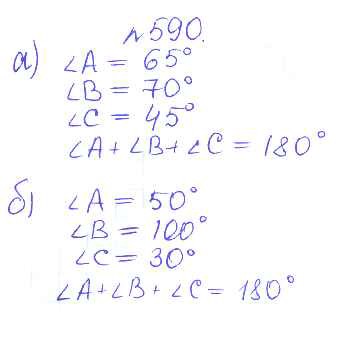 №590.
а) ∠A = 65°
∠B = 70°
∠C = 45°
∠A + ∠B + ∠C = 180°
б) ∠A = 50°
∠B = 100°
∠C = 30°
∠A + ∠B + ∠C = 180°